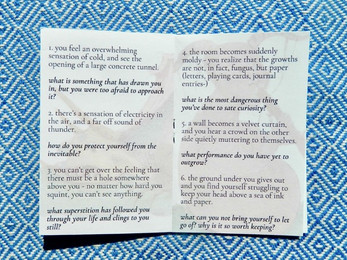 1. you feel an overwhelming
sensation of cold, and see the
opening of a large concrete tunnel.
what is something that has drawn you
in, but you were too afraid to approach
it?
2. there's a sensation of electricity in
the air, and a far off sound of
thunder.
how do you protect yourself from the
inevitable?
3. you can't get over the feeling that
there must be a hole somewhere
above you - no matter how hard you
squint, you can't see anything.
what superstition has followed you
through your life and clings to you
still?
4. the room becomes suddenly
moldy - you realize that the growths
are not, in fact, fungus, but paper
(letters, playing cards, journal
entries-)
what is the most dangerous thing
you've done to sate curiosity?
5. a wall becomes a velvet curtain,
and you hear a crowd on the other
side quietly muttering to themselves.
what performance do you have yet to
outgrow?
6. the ground under you gives out
and you find yourself struggling to
keep your head above a sea of ink
and paper.
what can you not bring yourself to let
go of? why is it so worth keeping?